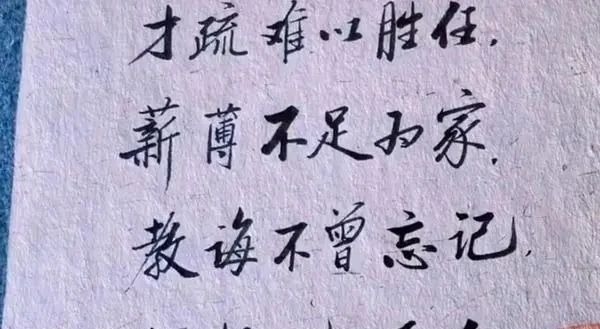 才疏难以胜任,
薪薄不足为家,
教诲不曾忘记,